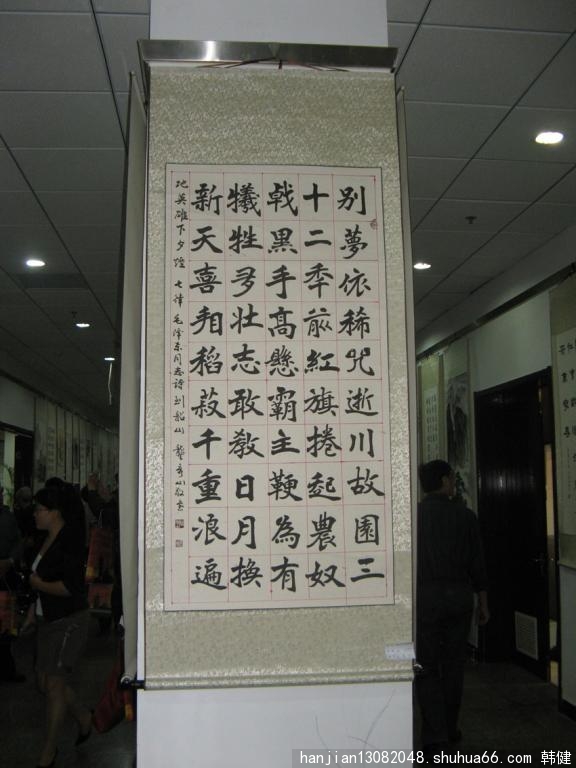 别夢依稀咒逝川故園三
十二秊前紅旗捲起農奴
戟黑手高懸霸主鞭為有
犧牲多壯志敢教日月換
新天喜看稻菽千重浪遍
地英雄下夕煙 七律 毛澤東同志詩 到韶山
hanjian13082048.shuhua66.com 韩健